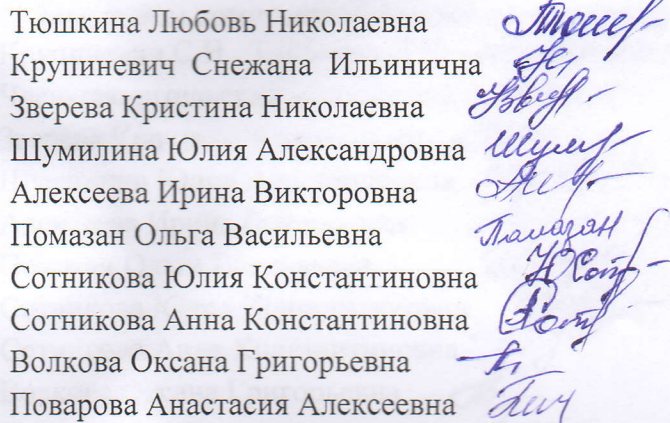 Тюшкина Любовь Николаевна
Крупиневич Снежана Ильинична
Зверева Кристина Николаевна
Шумилина Юлия Александровна
Алексеева Ирина Викторовна
Помазан Ольга Васильевна Помазан
Сотникова Юлия Константиновна
Сотникова Анна Константиновна
Волкова Оксана Григорьевна
Поварова Анастасия Алексеевна